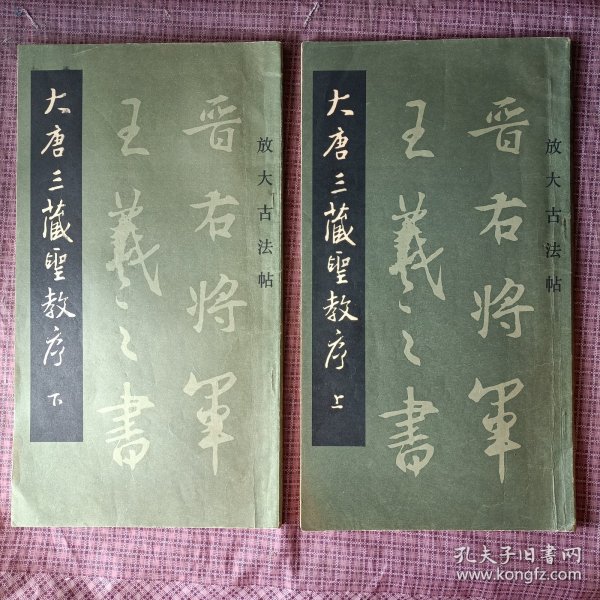 放大古法帖
晋右将军
王羲之书
大唐三藏聖教序 下
放大古法帖
晋右将軍
王羲之書
大唐三藏聖教序 上
孔夫子旧書网
www.kongfz.com